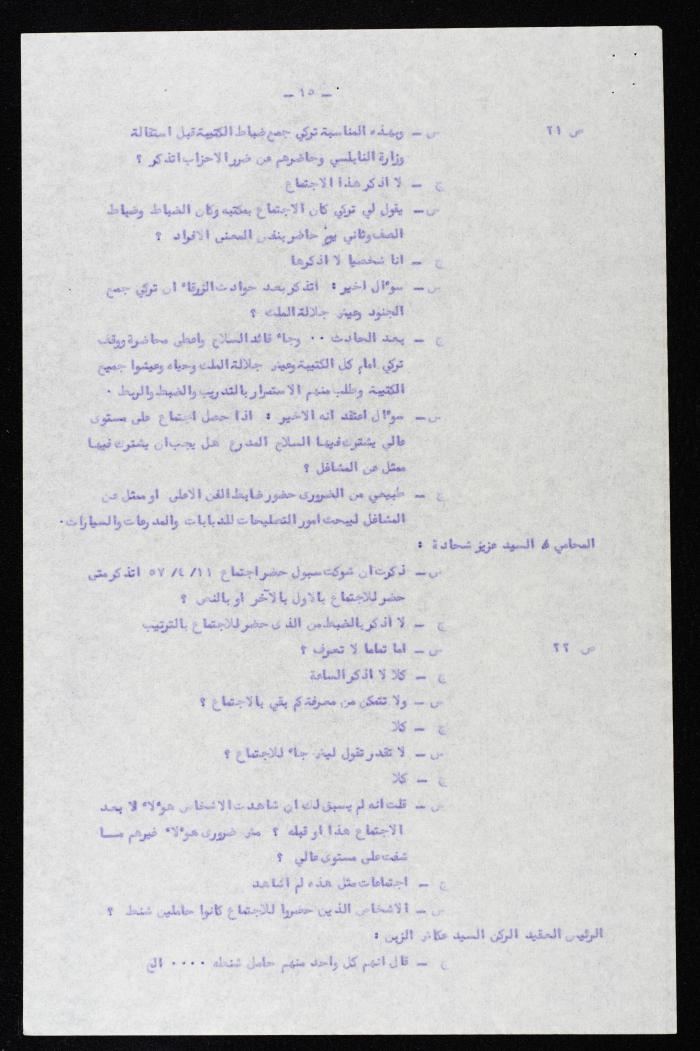 – ١٥ –
ص ٢١ س – وبهذه المناسبة تركي جمع ضباط الكتيبة قبل استقالة
وزارة النابلسي وحاضرهم عن ضرر الاحزاب اتذكر ؟
ج – لا اذكر هذا الاجتماع
س – يقول لي تركي كان الاجتماع بمكتبه وكان الضباط وضباط
الصف وثاني يوم حاضر بنفس المعنى الافراد ؟
ج – انا شخصيا لا اذكرها
س – سوءال اخير : اتذكر بعد حوادث الزرقاء ان تركي جمع
الجنود وعيش جلالة الملك ؟
ج – بعد الحادث ٠٠ وجاء قائد السلاح واعطى محاضرة ووقف
تركي امام كل الكتيبة وعيش جلالة الملك وحياه وعيشوا جميع
الكتيبة وطلب منهم الاستمرار بالتدريب والضبط والربط ٠
س – سوءال اعتقد انه الاخير : اذا حصل اجتماع على مستوى
عالي يشترك فيها السلاح المدرع هل يجب ان يشترك فيها
ممثل عن المشاغل ؟
ج – طبيعي من الضرورى حضور ضابط الفن الاعلى او ممثل عن
المشاغل ليبحث امور التصليحات للدبابات والمدرعات والسيارات٠
المحامي السيد عزيز شحادة :
س – ذكرت ان شوكت سبول حضر اجتماع ١١/ ٤/ ٥٧ اتذكر متى
حضر للاجتماع بالاول بالآخر او بالنص ؟
ج – لا أذكر بالضبط من الذى حضر للاجتماع بالترتيب
ص ٢٢ س – اما تماما لا تعرف ؟
ج – كلا لا اذكر الساعة
س – ولا تتمكن من معرفة كم بقي بالاجتماع ؟
ج – كلا
س – لا تقدر تقول ليش جاء للاجتماع ؟
ج – كلا
س – قلت انه لم يسبق لك ان شاهدت الاشخاص هوءلاء لا بعد
الاجتماع هذا او قبله ؟ مش ضرورى هوءلاء غيرهم مـــا
شفت على مستوى عالي ؟
ج – اجتماعات مثل هذه لم اشاهد
س – الاشخاص الذين حضروا للاجتماع كانوا حاملين شنط ؟
الرئيس العقيد الركن السيد عكاش الزبن :
ج – قال انهم كل واحد منهم حامل شنطه ٠٠٠٠ الخ